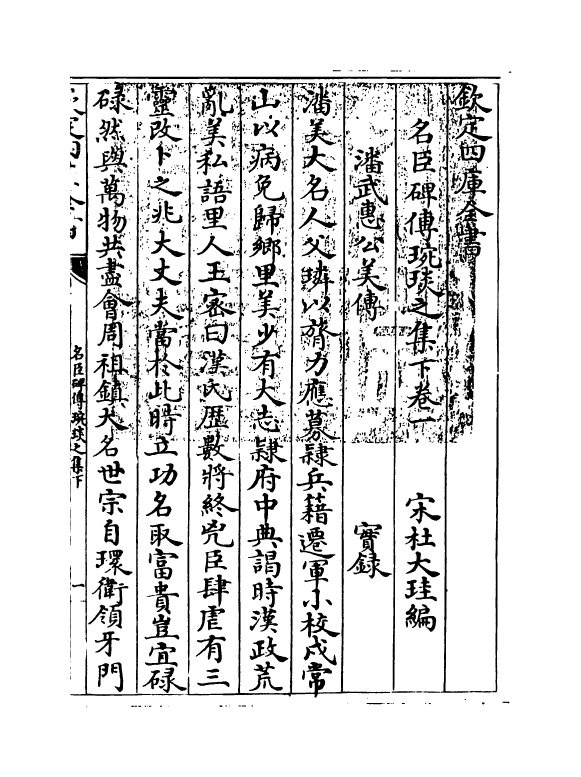 欽定四庫全書
名臣碑傳琬琰之集下卷一
宋杜大珪編
潘武惠公美傳
實録
潘美大名人父璘以膂力應募隸兵籍遷軍小校戍常
山以病免歸鄉里美少有大志隸府中典謁時漢政荒
亂美私語里人王宻曰漢氏歴數將終兇臣肆虐有三
靈改卜之兆大丈夫當於此時立功名取富貴豈宜碌
碌然與萬物共盡會周祖鎮大名世宗自環衛領牙門
名臣碑傳琬琰之集下
一